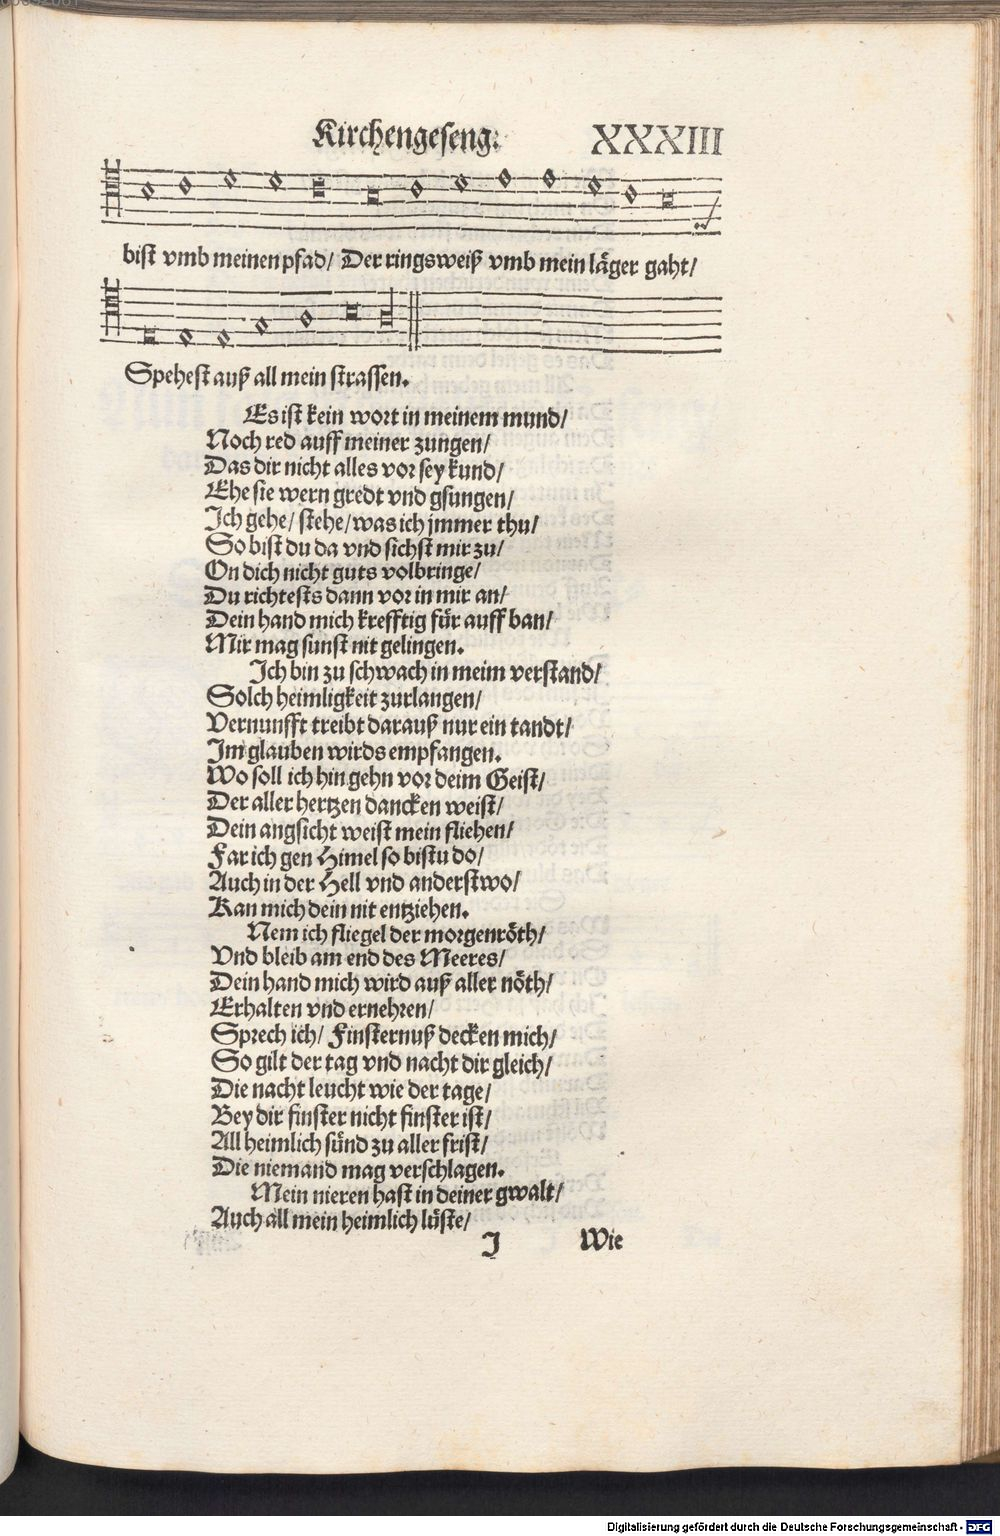 Kirchengeseng. XXXIII
bist vmb meinen pfad/ Der ringsweiß vmb mein läger gaht/
Spehest auß all mein strassen.
Es ist kein wort in meinem mund/
Noch red auff meiner zungen/
Das dir nicht alles vor sey kund/
Ehe sie wern gredt vnd gsungen/
Ich gehe/ stehe/ was ich jmmer thu/
So bist du da vnd sichst mir zu/
On dich nicht guts volbringe/
Du richtests dann vor in mir an/
Dein hand mich krefftig für auff ban/
Mir mag sunst nit gelingen.
Ich bin zu schwach in meim verstand/
Solch heimligkeit zurlangen/
Vernunfft treibt darauß nur ein tandt/
Im glauben wirds empfangen.
Wo soll ich hin gehn vor deim Geist/
Der aller hertzen dancken weist/
Dein angsicht weist mein fliehen/
Far ich gen Himel so bistu do/
Auch in der Hell vnd anderstwo/
Kan mich dein nit entziehen.
Nem ich fliegel der morgenröth/
Vnd bleib am end des Meeres/
Dein hand mich wird auß aller nöth/
Erhalten vnd ernehren/
Sprech ich/ Finsternuß decken mich/
So gilt der tag vnd nacht dir gleich/
Die nacht leucht wie der tage/
Bey dir finster nicht finster ist/
All heimlich sünd zu aller frist/
Die niemand mag verschlagen.
Mein nieren hast in deiner gwalt/
Auch all mein heimlich lüste/
J Wie
Digitalisierung gefördert durch die Deutsche Forschungsgemeinschaft - DFG